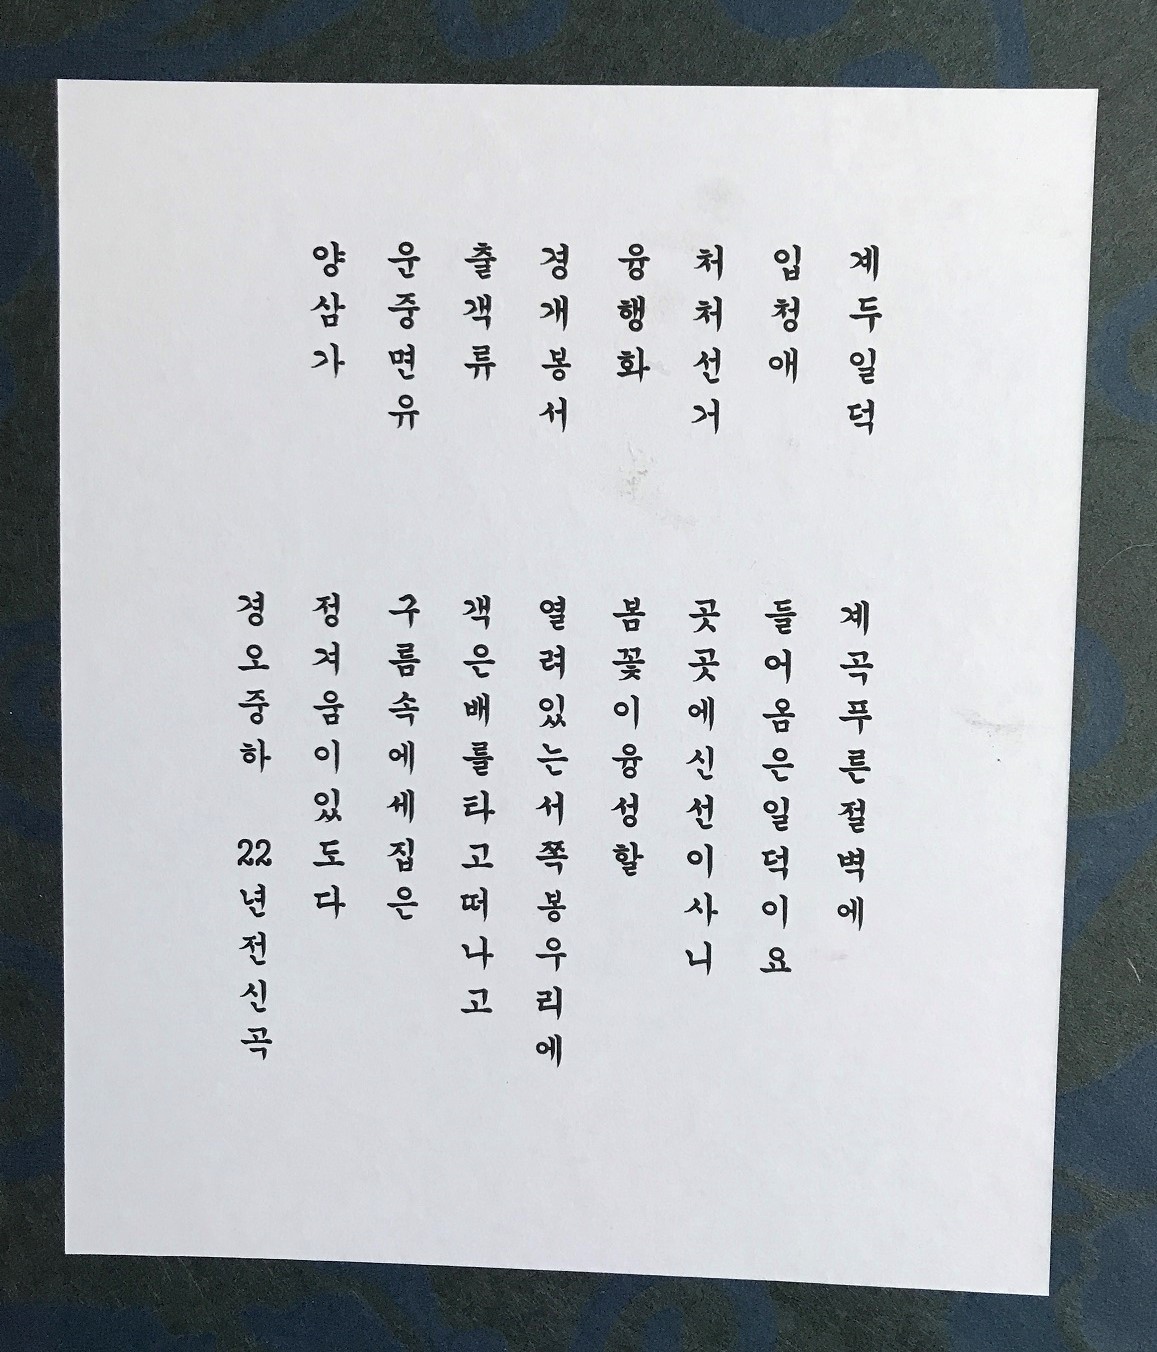 계두일덕
입청애
처처선거
융행화
경개봉서
출객류
운중면유
양삼가
계곡푸른절벽에
들어옴은일덕이요
곳곳에신선이사니
봄꽃이융성할
열려있는서쪽봉우리에
객은배를타고떠나고
구름속에세집은
정겨움이있도다
경오중하 22년전신곡